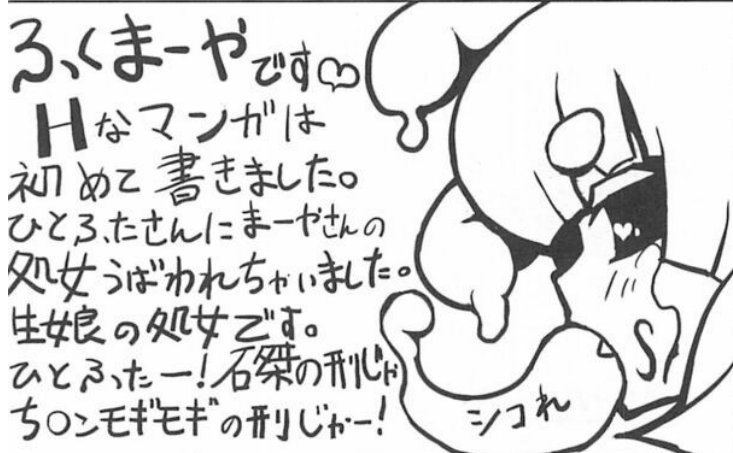 ふっくまーやです♡
Hなマンガは
初めて書きました。
ひとふたさんにまーやさんの
処女うばわれちゃいました。
生娘の処女です。
ひとふったー!石桀の刑じゃ
ち○ンモギモギの刑じゃー!
シコれ